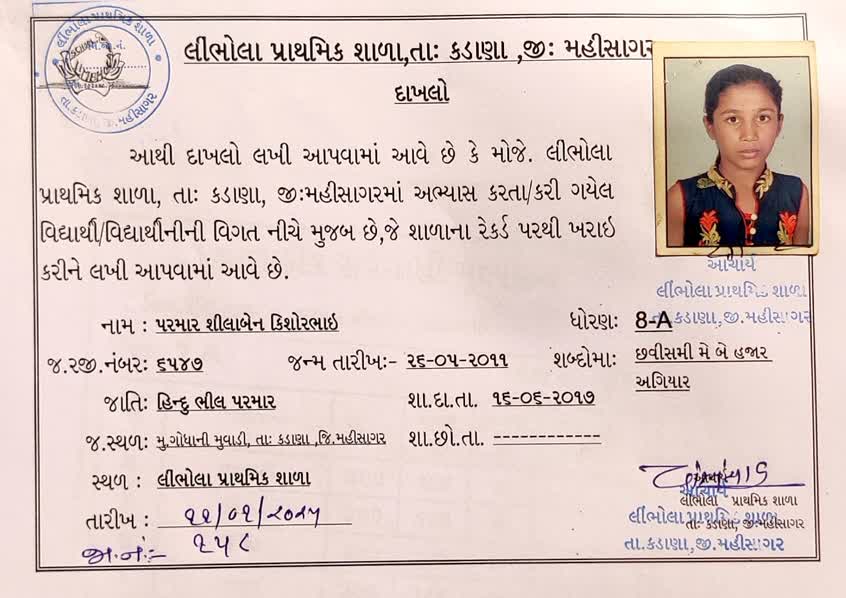 લીંભોલા પ્રાથમિક શાળા
જા.નં.
તા.કડાણા, જી.મહીસાગર
લીંભોલા પ્રાથમિક શાળા,તાઃ કડાણા ,જીઃ મહીસાગર
દાખલો
આથી દાખલો લખી આપવામાં આવે છે કે મોજે. લીંભોલા
પ્રાથમિક શાળા, તાઃ કડાણા, જીઃમહીસાગરમાં અભ્યાસ કરતા/કરી ગયેલ
વિદ્યાર્થી/વિદ્યાર્થીનીની વિગત નીચે મુજબ છે,જે શાળાના રેકર્ડ પરથી ખરાઇ
કરીને લખી આપવામાં આવે છે.
આચાર્ય
લીંભોલા પ્રાથમિક શાળા
તા.કડાણા,જી.મહીસાગર
નામ : પરમાર શીલાબેન કિશોરભાઇ ધોરણઃ 8-A
જ.રજી.નંબરઃ ૬૫૪૭ જન્મ તારીખઃ- ૨૬-૦૫-૨૦૧૧ શબ્દોમાઃ છવીસમી મે બે હજાર
અગિયાર
જાતિઃ હિન્દુ ભીલ પરમાર શા.દા.તા. ૧૬-૦૬-૨૦૧૭
જ.સ્થળઃ મુ.ગોધાની મુવાડી, તાઃ કડાણા ,જિ.મહીસાગર શા.છો.તા. ------------
સ્થળ : લીંભોલા પ્રાથમિક શાળા
તારીખ : ૨૨/૦૧/૨૦૨૫
જા.નં:- ૨૫૮
આચાર્ય
લીંભોલા પ્રાથમિક શાળા
તાઃ કડાણા, જીઃમહીસાગર
આચાર્ય
લીંભોલા પ્રાથમિક શાળા
તા.કડાણા,જી.મહીસાગર